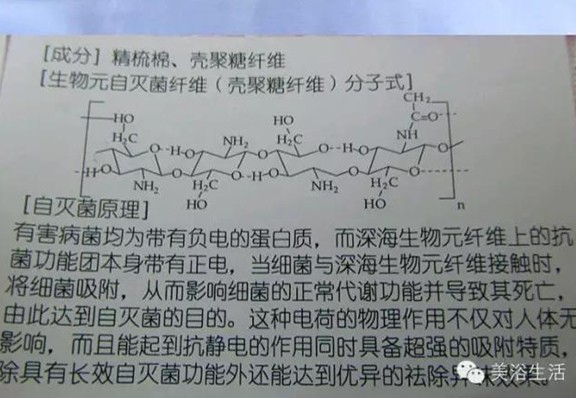 [成分] 精梳棉、壳聚糖纤维
[生物元自灭菌纤维(壳聚糖纤维)分子式]
CH₂
HO HO C=O
H₂C NH₂ H₂C NH
O O-H-O O O O--H-O O O
H-O O O O-H-O O O
NH₂ H₂C NH₂ H₂C
HO HO n
[自灭菌原理]
有害病菌均为带有负电的蛋白质，而深海生物元纤维上的抗
菌功能团本身带有正电，当细菌与深海生物元纤维接触时，
将细菌吸附，从而影响细菌的正常代谢功能并导致其死亡，
由此达到自灭菌的目的。这种电荷的物理作用不仅对人体无
影响，而且能起到抗静电的作用同时具备超强的吸附特质，
除具有长效自灭菌功能外还能达到优异的祛除异味效果。
美浴生活